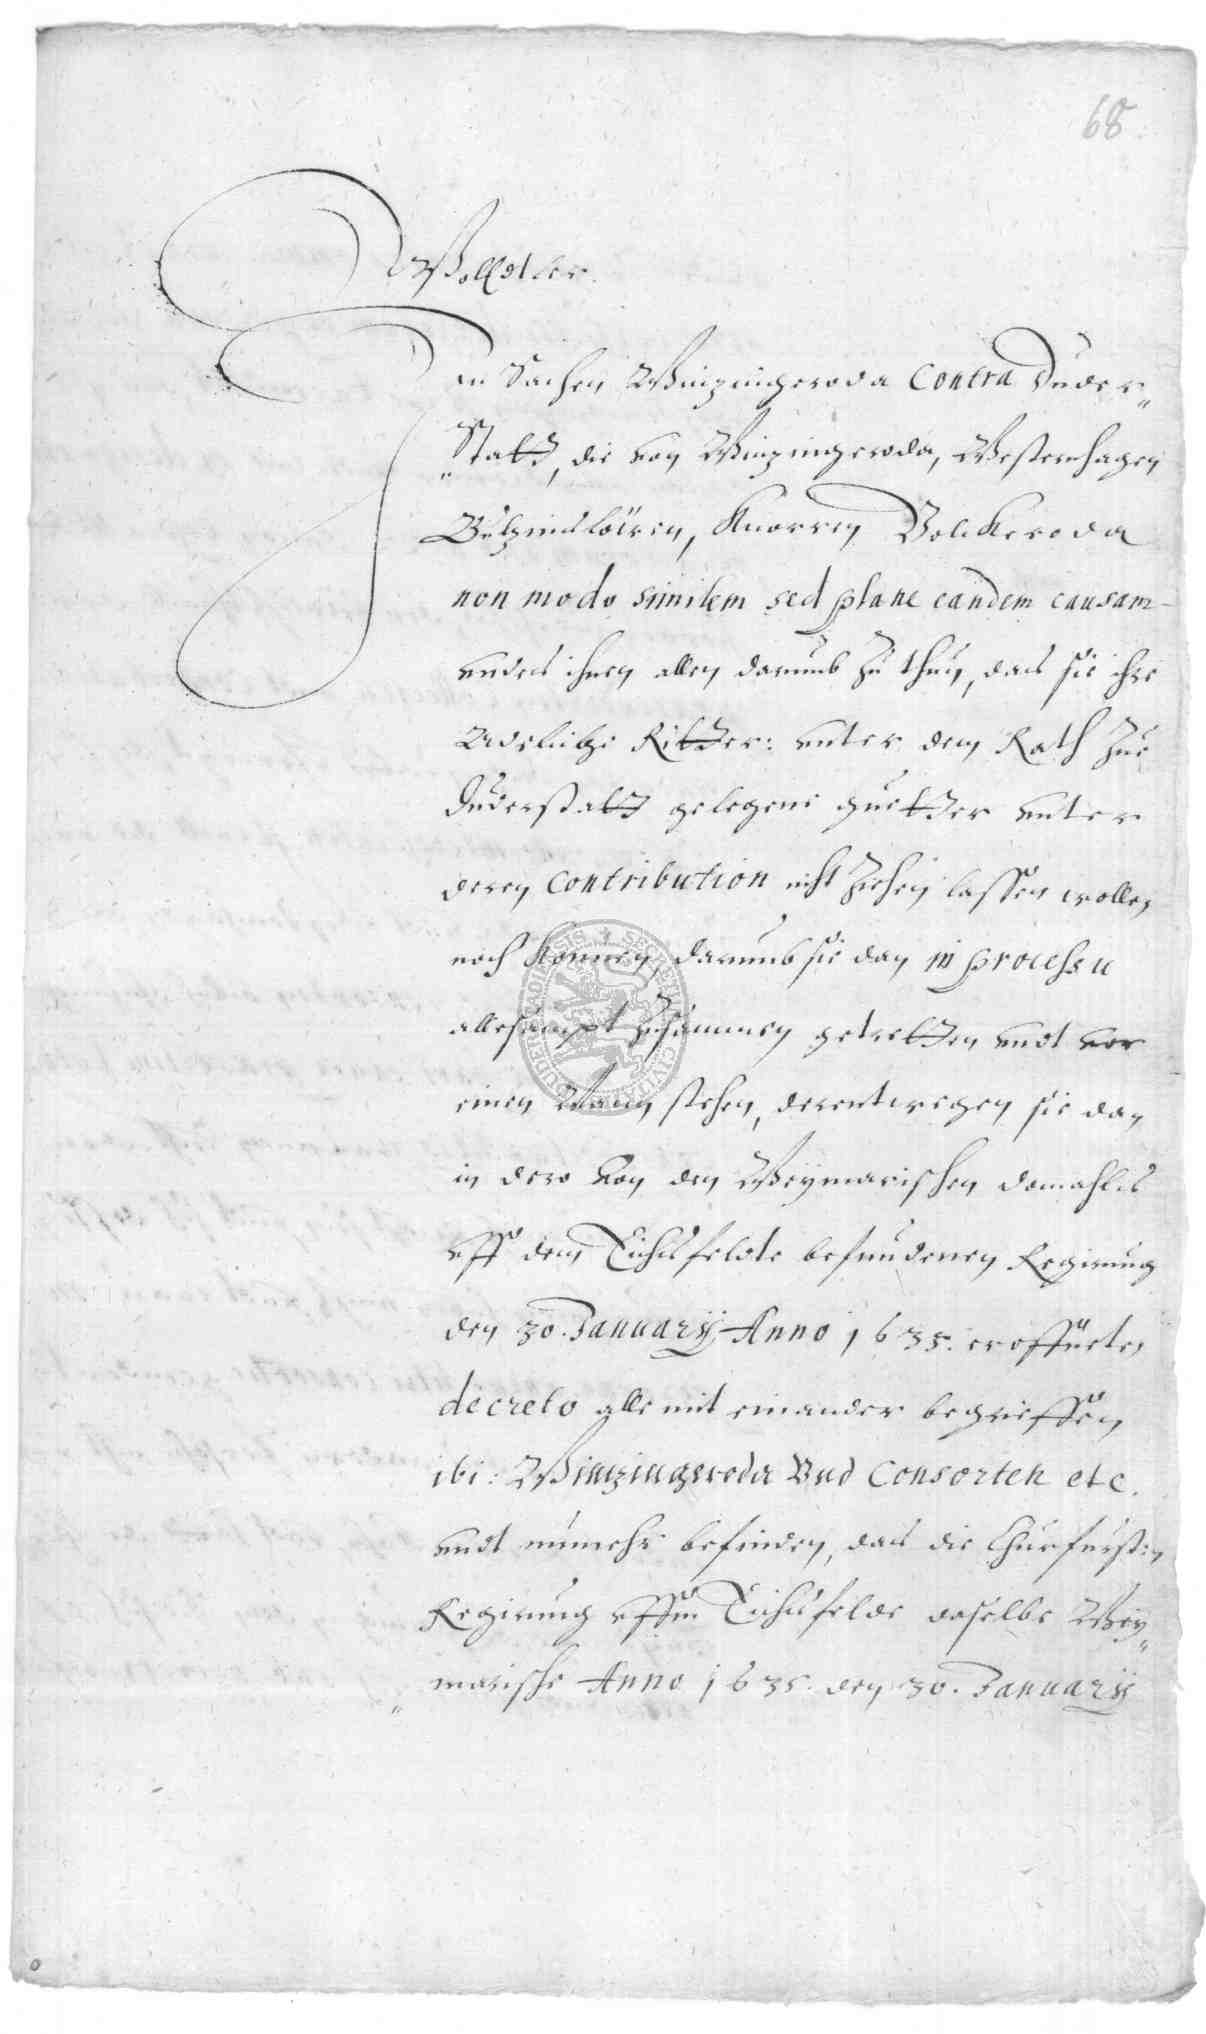 68
Wolledler.
In Sachen Winzingeroda Contra Duder„
„Stattt, die von Winzingeroda, Westernhagen
Bultzingslöwen, Knorren Bolckeroda
non modo similem sed plane eandem causam
undt ihnen allen darumb zu thun, das sie ihre
Adeliche Ritter: unter dem Rath zue
Duderstattt gelegene guetter unter
deren Contribution nicht ziehen lassen wollen
noch können, darumb sie dan in processu
allesampt zusammen getretten undt vor
einen Mann stehen, derentwegen sie dan
in dero von den Weymarischen domahls
uff dem Eichsfeldte befundenen Regirung
den 30. January Anno 1635. eröffneten
decreto alle mit einander begrieffen
ibi: Winzingeroda Vnd Consorten etc.
undt nunmehr befinden, das die Churfurstn
Regirung uffm Eichsfelde daselbe Wey„
„marische Anno 1635. den 30. January
SECRETUM CIVITATIS DUDERSTADIENSIS